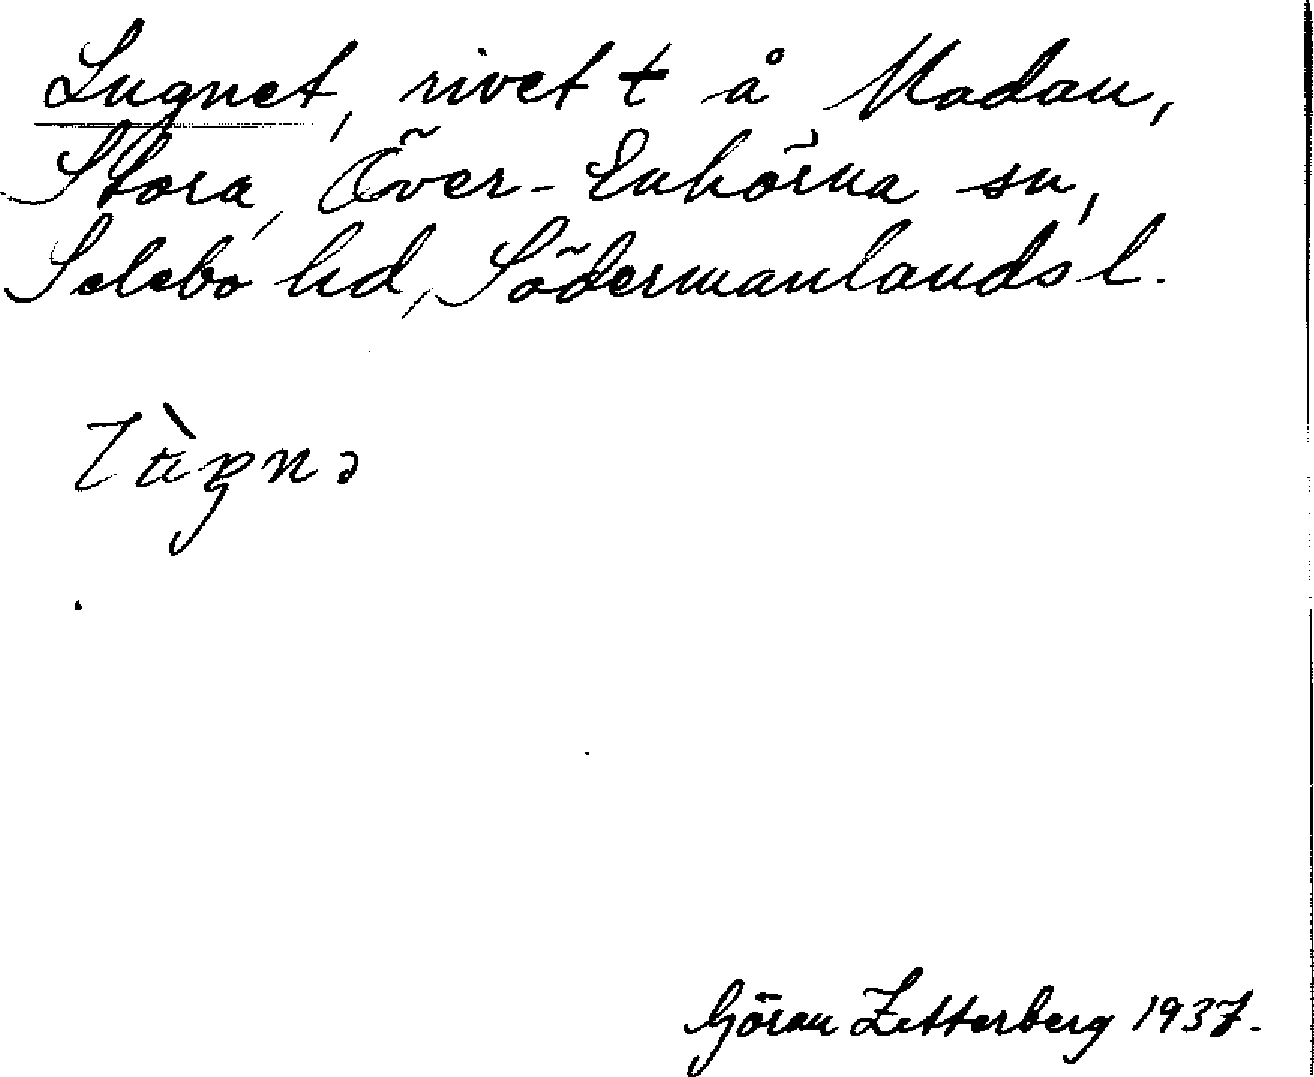 Lugnet, rivet t å Madan,
Stora, Över-Enhörna sn,
Selebo hd, Södermanlands l.
lùgnə
Göran Zetterberg 1937.